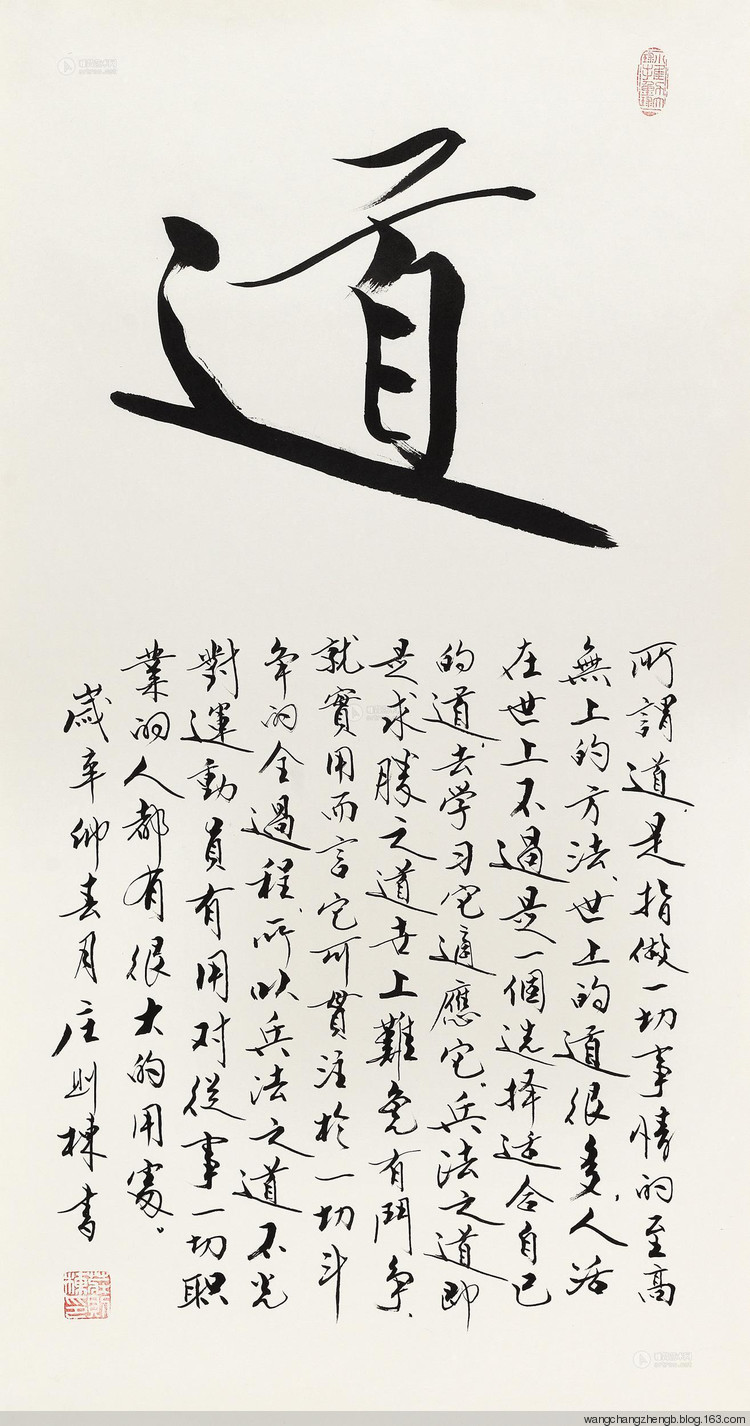 道
所謂道,是指做一切事情的至高
無上的方法,世上的道很多,人活
在世上不過是一個选择适合自己
的道,去学习它適應它,兵法之道即
是求勝之道世上難免有鬥争,
就實用而言它可貫注於一切斗
争的全過程,所以兵法之道不光
對運動員有用对從事一切职
業的人都有很大的用處。
歲辛卯春月庄则棟書
wangchangzhengb.blog.163.com